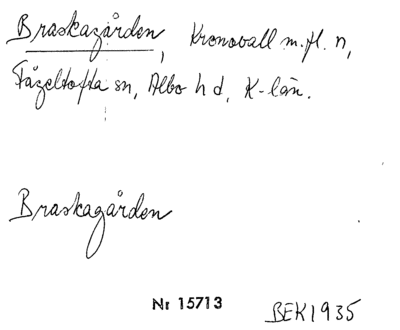 Braskagården, Kronovall m.fl. n,
Fågeltofta sn, Albo hd, K-län.
Braskagården
Nr 15713 BEK 1935